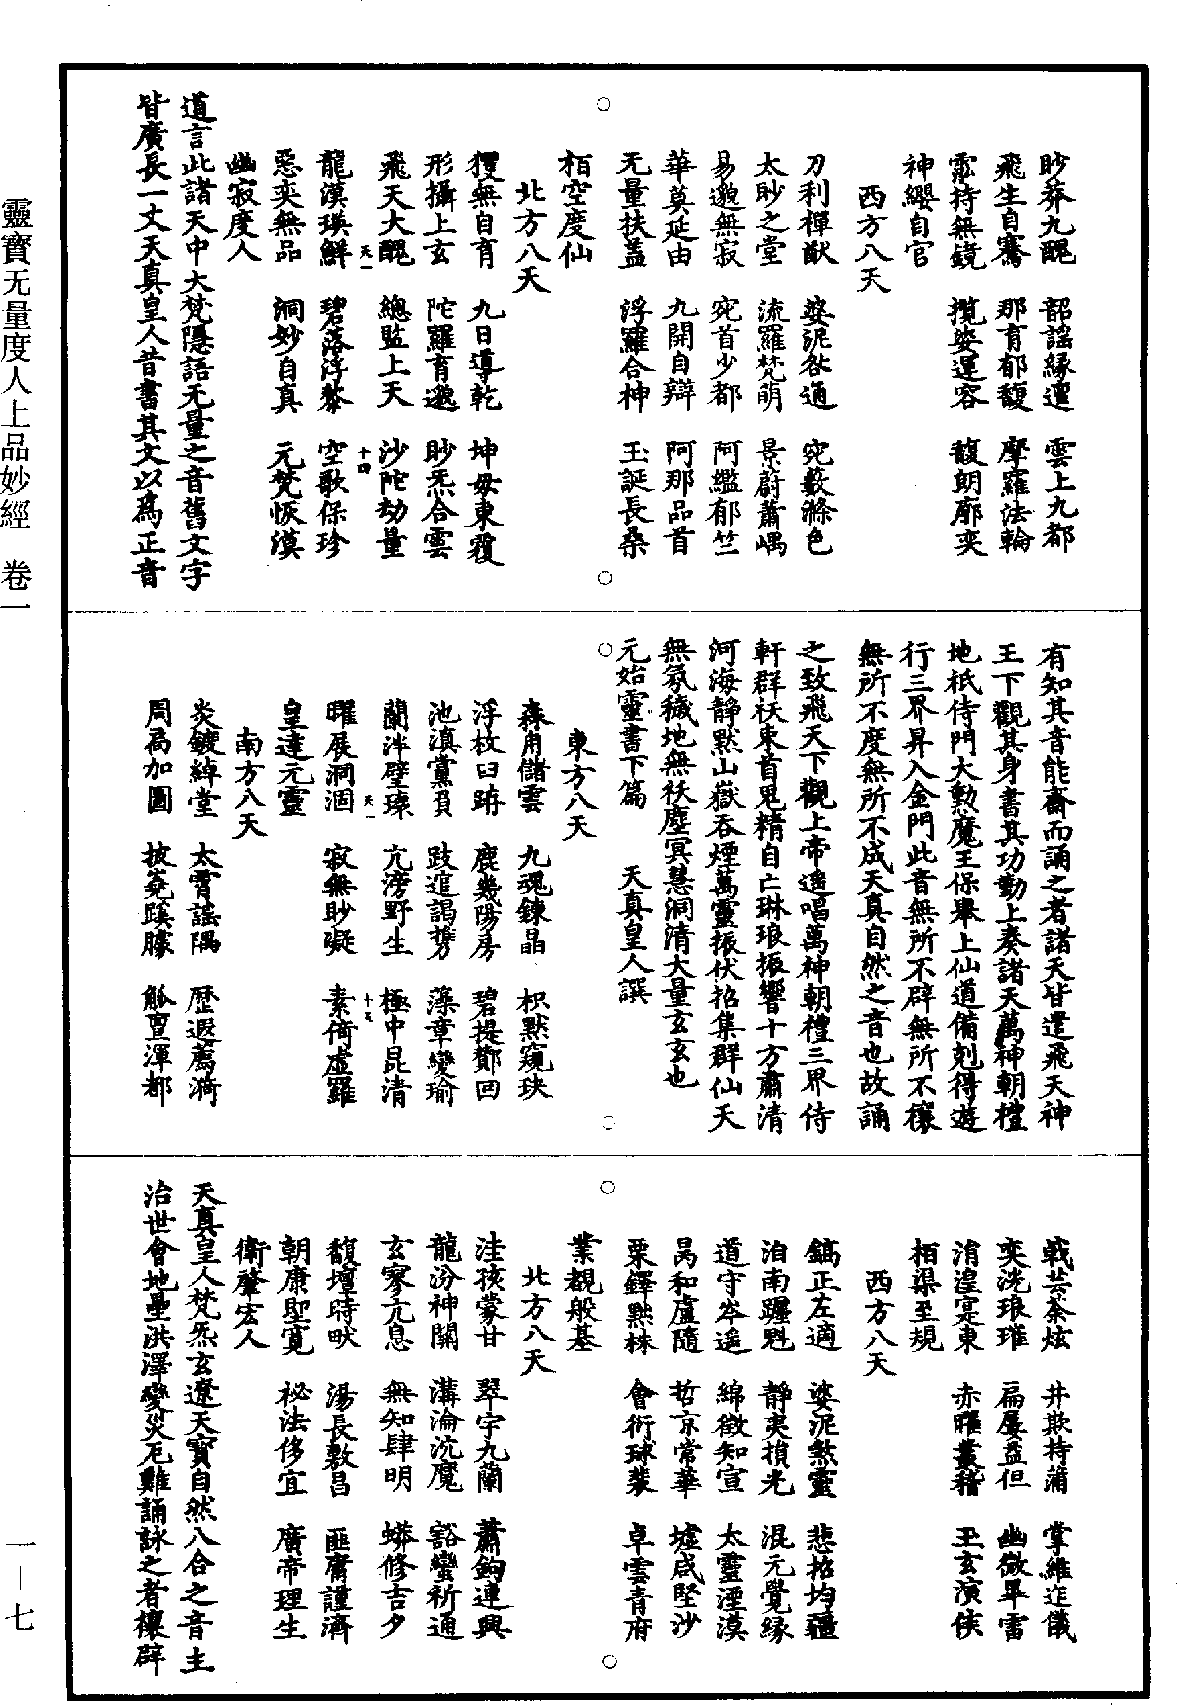 眇莽九醜　韶謠緣邅　雲上九都
飛生自騫　那育郁馥　摩羅法輪
霐持無鏡　攬姿運容　馥朗廓奕
神纓自官
西方八天
刀利禪猷　婆泥咎通　宛藪滌色
太眇之堂　流羅梵萌　景蔚蕭嵎
易邈無寂　宛首少都　阿濫郁竺
華莫延由　九開自辯　阿那品首
无量扶蓋　浮羅合神　玉誕長桑
栢空度仙
北方八天
獲無自育　九日導乾　坤母東覆
形攝上玄　陀羅育邈　眇炁合雲
飛天大醜　總監上天　沙陀劫量
天一　十四
龍漢瑛鮮　碧落浮黎　空歌保珍
惡奕無品　洞妙自真　元梵恢漠
幽寂度人
道言此諸天中大梵隱語无量之音舊文字
皆廣長一丈天真皇人昔書其文以爲正音
有知其音能齋而誦之者諸天皆遣飛天神
王下觀其身書其功勤上奏諸天萬神朝禮
地祇侍門大勳魔王保舉上仙道備剋得遊
行三界昇入金門此音無所不辟無所不禳
無所不度無所不成天真自然之音也故誦
之致飛天下觀上帝遥唱萬神朝禮三界侍
軒群袄束首鬼精自亡琳琅振響十方肅清
河海靜默山嶽吞煙萬靈振伏招集群仙天
無氛穢地無袄塵冥慧洞清大量玄玄也
元始靈書下篇　天真皇人譔
東方八天
森角儲雲　九魂鍊晶　枳黙窺玦
浮枚臼　鹿幾陽房　碧提鄭回
池滇黨　跂逭謁　藻章變瑜
蘭泮璧璨　亢滂野生　極中昆清
天一　十五
曜展洞涸　寂無眇礙　素倚虛羅
皇達元靈
南方八天
炎鍍綽堂　太霄謠隅　歷遐薦漪
周高加圖　披　觚亶渾都
戟共　炫　井欺持蒲　掌維迮儀
奕洸琅璀　扁屢益但　幽微畢雷
湑遑寔東　赤曜叢稽　王玄演使
栢渠至規
西方八天
鎬正左適　婆泥煞靈　悲招均疆
洎南躔魁　靜夷損光　混元覺緣
道守岑遥　綿徵知宣　太靈湮漠
昺和盧隨　哲京常華　墟咸堅沙
栗鐸黙株　會衍球裴　卓雲青府
業觀般基
北方八天
洼孩蒙甘　翠宇九蘭　蕭鉤連興
龍汾神關　溝淪沇魔　豁蠻祈通
玄寥亢息　無知肆明　蟒修吉夕
馥壇時畎　湯長敷昌　匪庸謹濟
朝康聖寬　祕法侈宜　廣帝理生
衛肇宏人
天真皇人梵炁玄遼天寶自然八合之音主
治世會地墨洪澤變災厄難誦詠之者禳辟
靈寶无量度人上品妙經　卷一
一—七